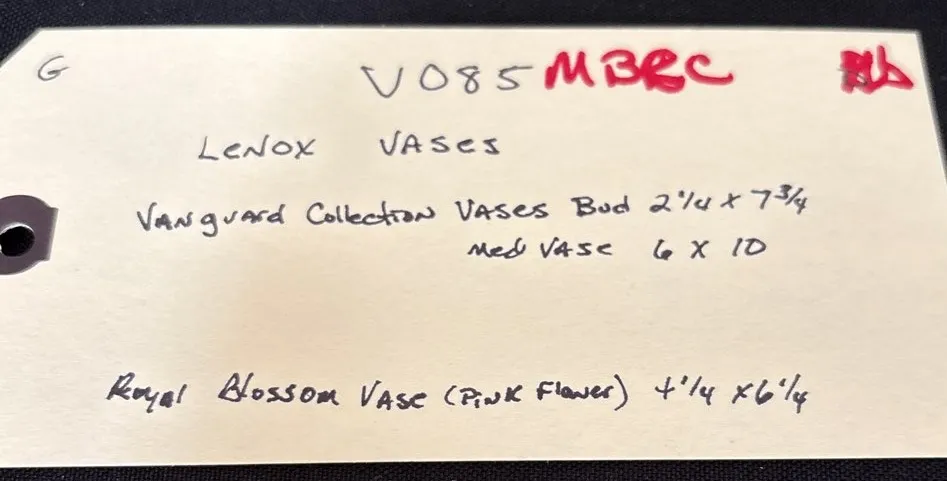 G V085 MBRC
LENOX VASES
VANguard Collection VASES Bud 2 1/4 x 7 3/4
Med VASE 6 X 10
Royal Blossom VASE (PiNK Flower) 4 1/4 x 6 1/4